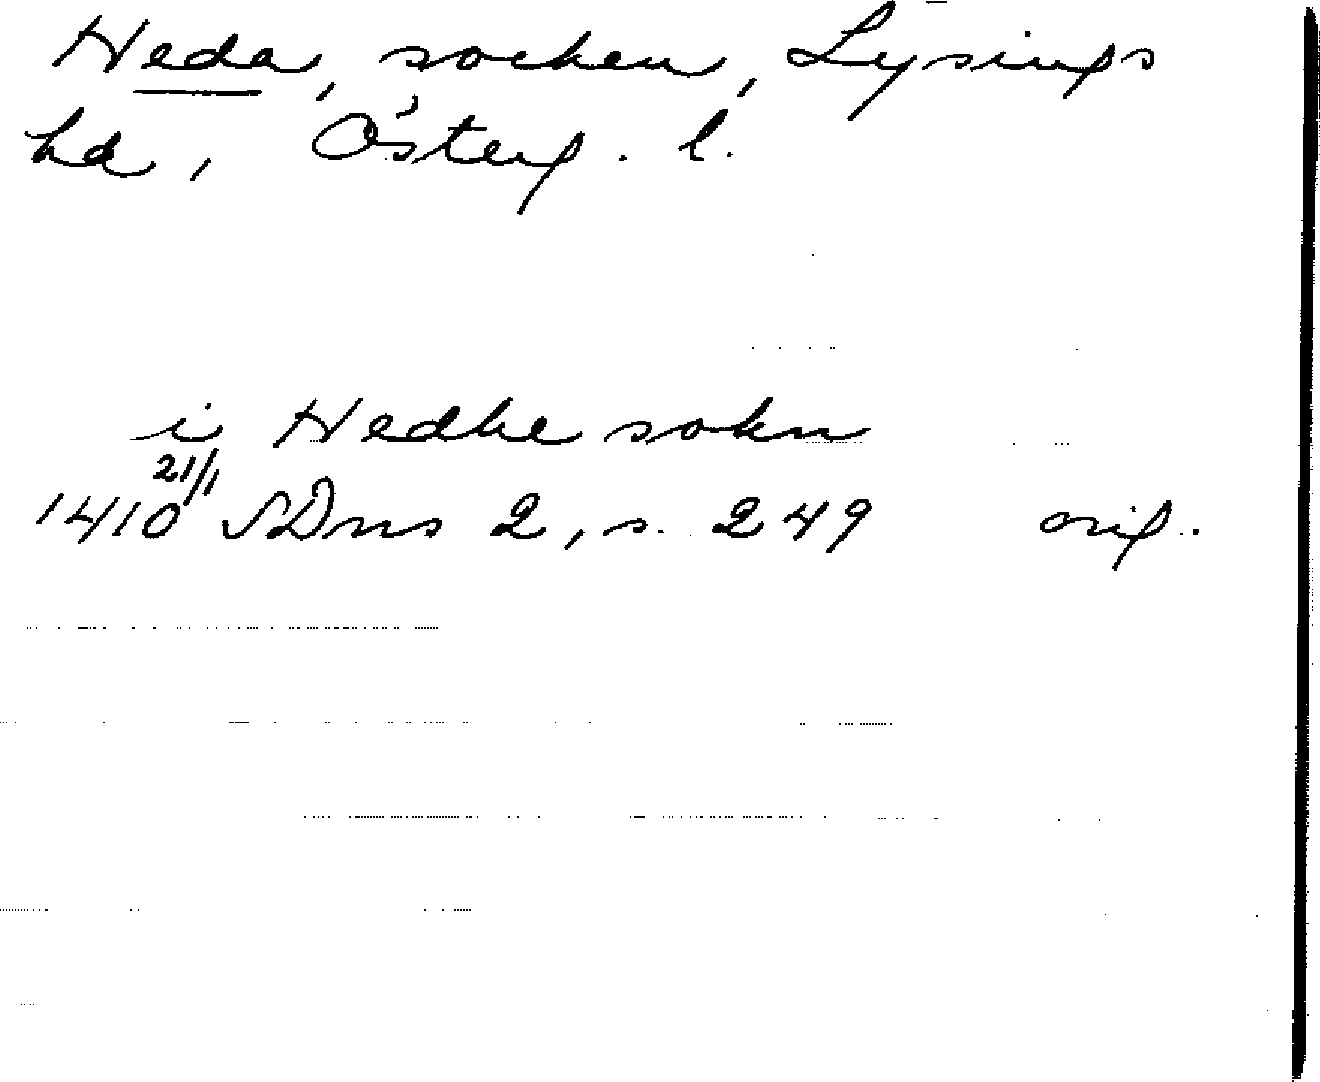 Heda, socken, Lysings
hd, Österg. l.
i Hedhe sokn
21/1
1410 SDns 2, s. 249 orig.